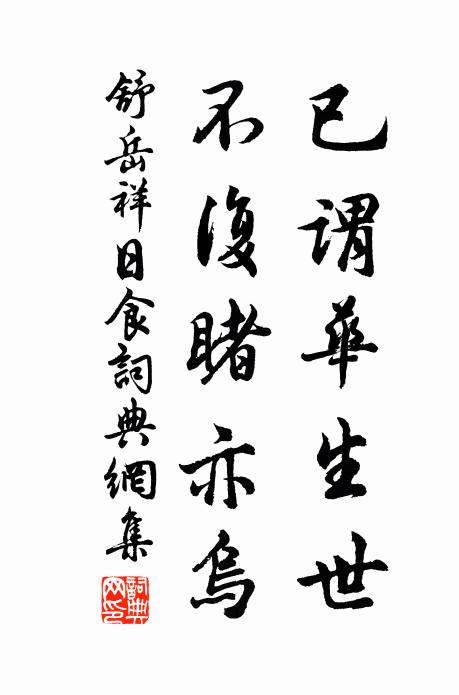 已謂華生世
不復睹亦烏
舒岳祥日食詞典網集
詞典網印